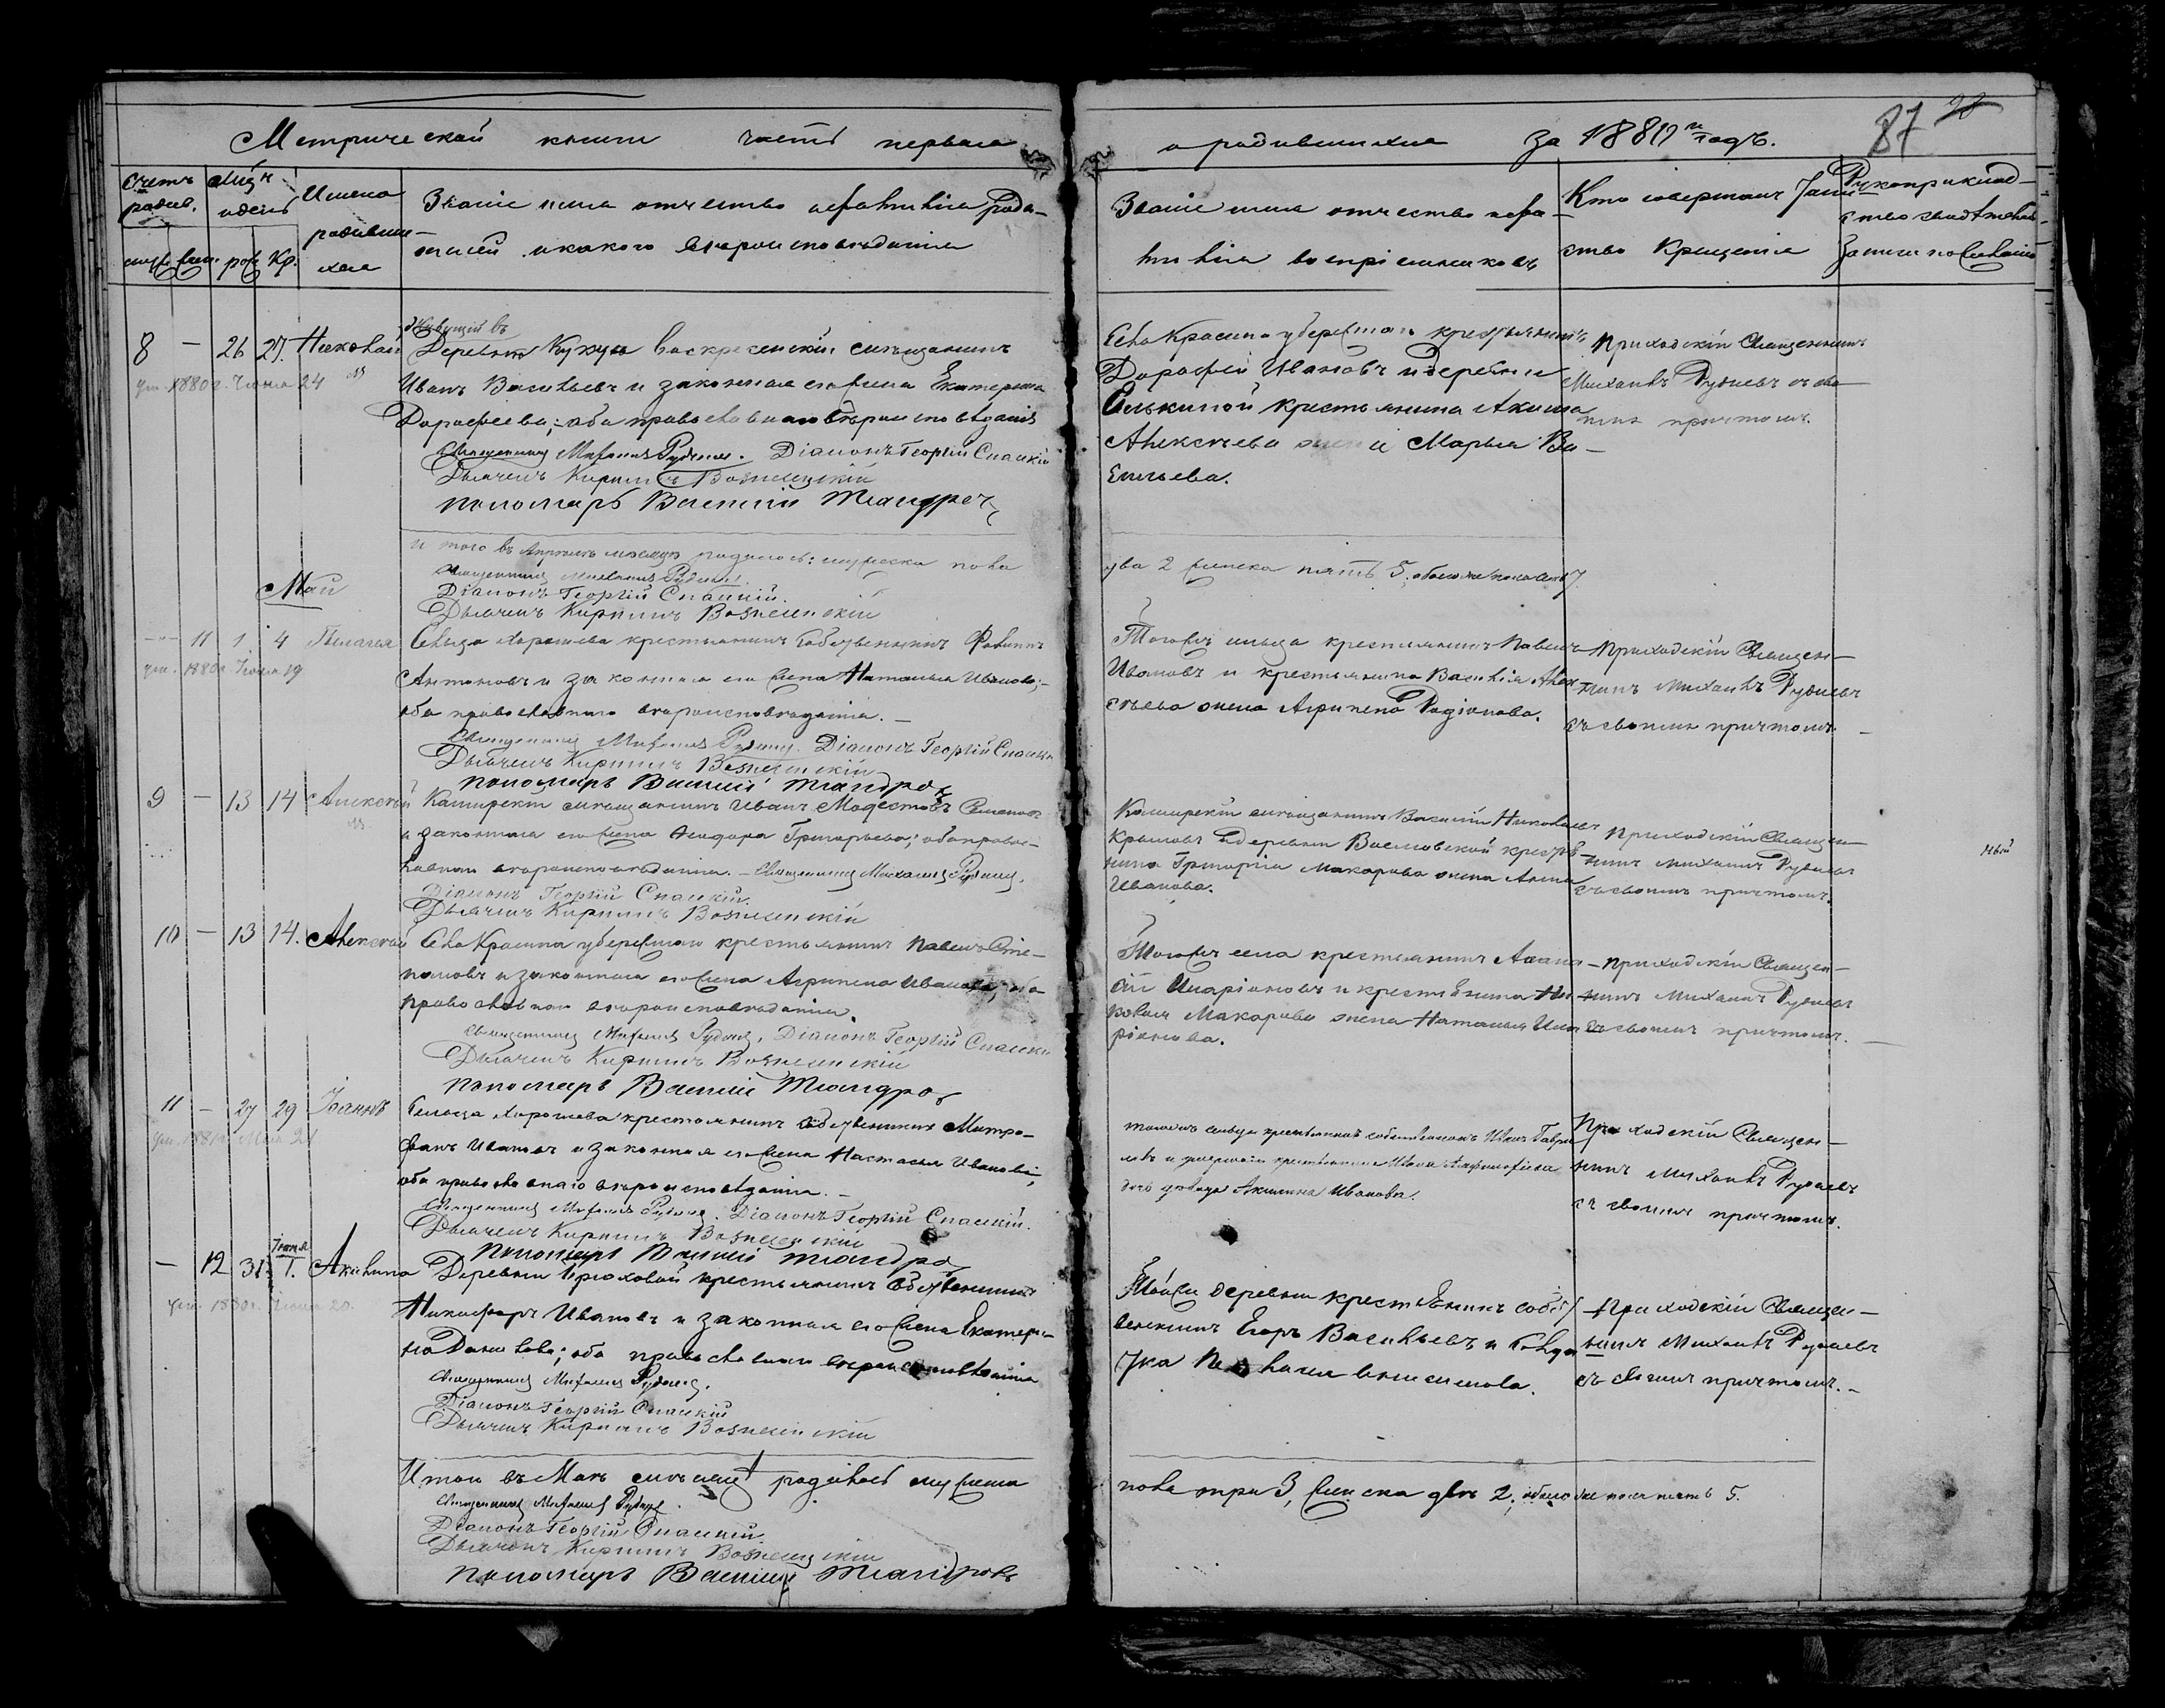 Метрической книги часть первая
о родившихся за 1880й годъ.
87
28
Счетъ родив.
Мѣц. и день
Имена родивши-
хся
муж. жен. рож. Кр.
Званіе имя отчество и фамилія роди-
телей и какого вѣроисповѣданія
Званіе имя отчество и фа-
милія воспріемниковъ
Кто совершалъ Таин-
ство Крещенія
Рукоприклад-
ство свидѣтелей
записи по желанію
8 — 26 27. Николай
ум. 1880 г. Іюня 24
Живущій въ
Деревни Кукуи воскресенскій мѣщанинъ
Иванъ Васильевъ и законная его жена Екатерина
Дорофеева; оба православнаго вѣроисповѣданія
Священникъ Михаилъ Руднев. Діаконъ Георгій Спаскій
Дьячекъ Кириллъ Вознесенскій
Пономарь Василій
Села Краснина крестьянинъ
Дорофей Ивановъ и деревни
Селькиной крестьянина Акима
Алексѣева жена Марья Ва-
сильева.
Приходскій Священникъ
Михаилъ Рудневъ съ сво-
имъ причтомъ.
И того въ Апрѣлѣ месяцѣ родилось: мужеска пола
два 2 женска пять 5, обоего пола семь 7.
Священникъ Михаилъ Руднев.
Діаконъ Георгій Спаскій.
Дьячекъ Кириллъ Вознесенскій
Май
— 11 1 4 Пелагея
ум. 1880 г. Іюля 19
Сельца Хорошева крестьянинъ собственникъ Филиппъ
Антоновъ и законная его жена Наталья Иванова;
оба православнаго вѣроисповѣданія. —
Священникъ Михаилъ Руднев. Діаконъ Георгій Спаскій
Дьячекъ Кириллъ Вознесенскій
Пономарь Василій
Тогожъ сельца крестьянинъ Павелъ
Ивановъ и крестьянина Василія Алек-
сѣева жена Агрипена Родіонова.
Приходскій Священ-
никъ Михаилъ Рудневъ
съ своимъ причтомъ —
9 — 13 14 Алексѣй
Каширскій мѣщанинъ Иванъ Модестовъ
и законная его жена Феодора Григорьева; оба право-
славнаго вѣроисповѣданія. — Священникъ Михаилъ Руднев.
Діаконъ Георгій Спаскій.
Дьячекъ Кириллъ Вознесенскій
Каширскій мѣщанинъ Василій Николаевъ
Крыловъ и деревни крестья-
нина Григорія Макарова жена Анна
Иванова.
Приходскій Священ-
никъ Михаилъ Рудневъ
съ своимъ причтомъ.
10 — 13 14. Алексѣй
Села Краснина крестьянинъ Павелъ Сте-
пановъ и законная его жена Агрипена Иванова; оба
православнаго вѣроисповѣданія.
Священникъ Михаилъ Руднев. Діаконъ Георгій Спаскій
Дьячекъ Кириллъ Вознесенскій
Пономарь Василій
Тогожъ села крестьянинъ Афана-
сій Иларіоновъ и крестьянина
Макарова жена Наталья Ила-
ріонова.
Приходскій Священ-
никъ Михаилъ Рудневъ
съ своимъ причтомъ. —
11 — 27 29 Іоаннъ
Сельца Хорошева крестьянинъ собственникъ Митро-
фанъ Ивановъ и законная его жена Настасья Иванова;
оба православнаго вѣроисповѣданія. —
Священникъ Михаилъ Руднев. Діаконъ Георгій Спаскій.
Дьячекъ Кириллъ Вознесенскій
Пономарь Василій
тогожъ сельца крестьянинъ собственникъ Иванъ Гаври-
ловъ и крестьянина Ивана
дочь девица Акилина Иванова.
Приходскій Священ-
никъ Михаилъ Рудневъ
съ своимъ причтомъ.
— 12 31 Іюня 1. Акилина
ум. 1880 г. Іюня 20.
Деревни Брюховой крестьянинъ собственникъ
Никифоръ Ивановъ и законная его жена Екатери-
на Данилова; оба православнаго вѣроисповѣданія
Священникъ Михаилъ Руднев.
Діаконъ Георгій Спаскій
Дьячекъ Кириллъ Вознесенскій
Тойже деревни крестьянинъ собст-
венникъ Егоръ Васильевъ и
Приходскій Священ-
никъ Михаилъ Рудневъ
съ своимъ причтомъ. —
Итого въ Маѣ месяцѣ родилось мужеска
пола три 3, женска двѣ 2, обоего же пола пять 5.
Священникъ Михаилъ Руднев.
Діаконъ Георгій Спаскій
Дьячекъ Кириллъ Вознесенскій
Пономарь Василій